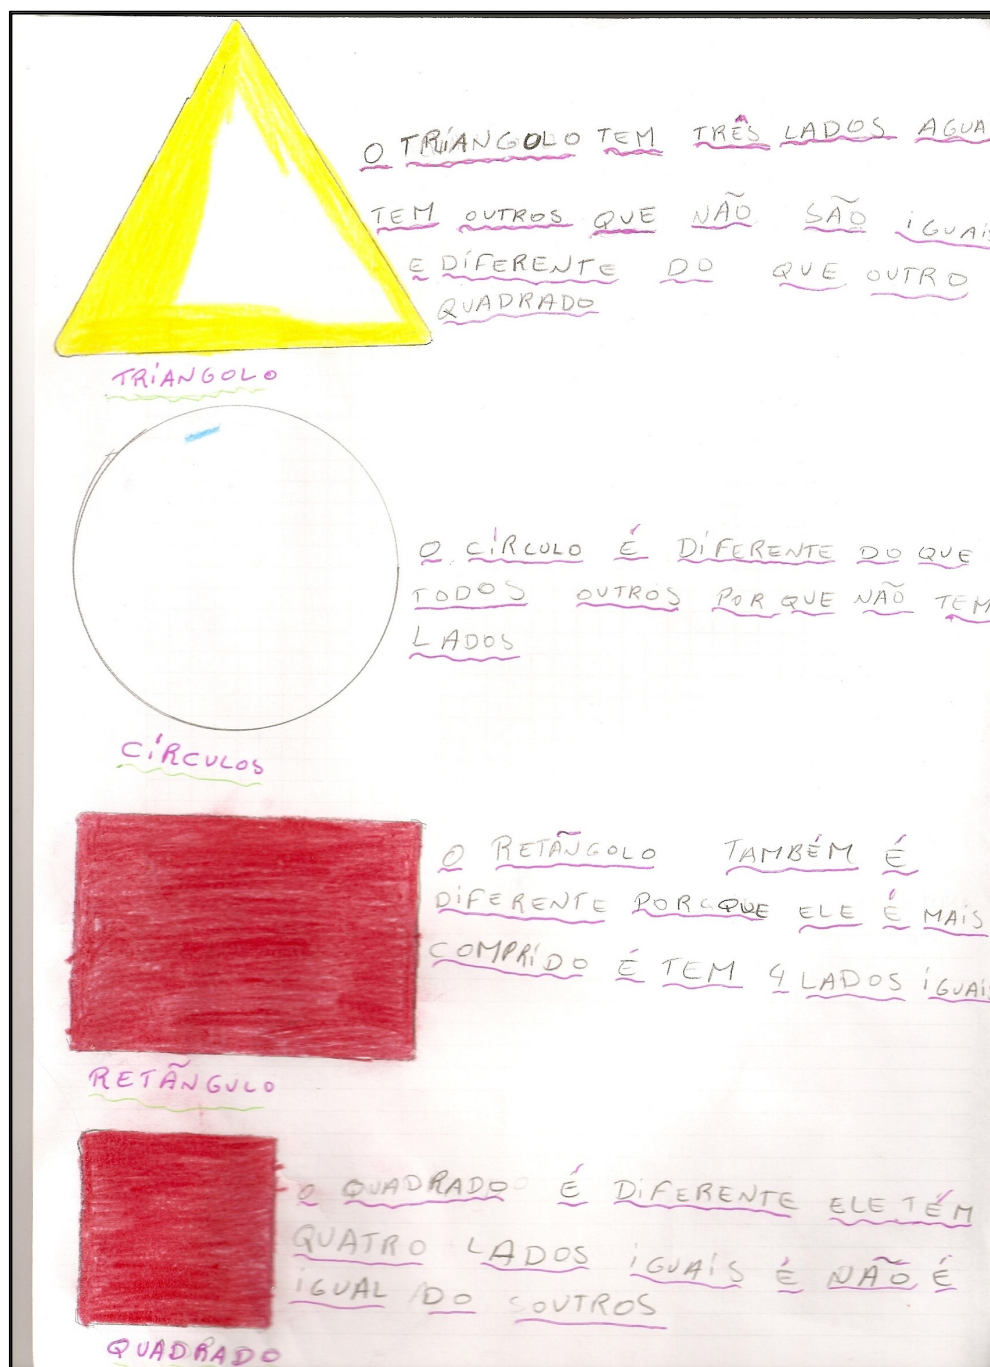 O TRIANGOLO TEM TRÊS LADOS AGUA
TEM OUTROS QUE NÃO SÃO IGUAIS
E DIFERENTE DO QUE OUTRO
QUADRADO
TRIANGOLO
O CÍRCULO É DIFERENTE DO QUE
TODOS OUTROS POR QUE NÃO TEM
LADOS
CÍRCULOS
O RETÃNGOLO TAMBÉM É
DIFERENTE PORQUE ELE É MAIS
COMPRIDO É TEM 4 LADOS IGUAIS
RETÃNGULO
O QUADRADO É DIFERENTE ELE TÉM
QUATRO LADOS IGUAIS É NÃO É
IGUAL DO SOUTROS
QUADRADO